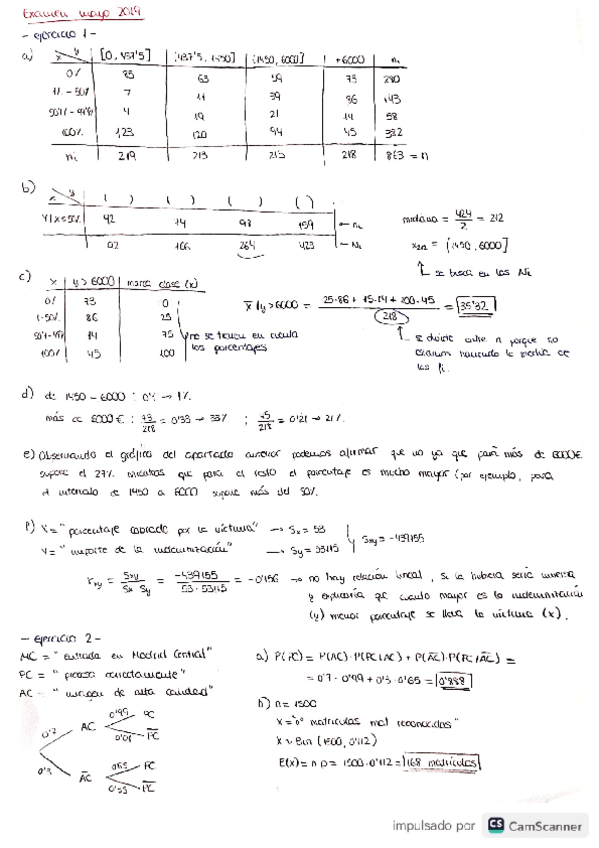 Examen mayo 2019
- ejercicio 1 -
a) x y [0, 437'5] (437'5, 1450] (1450, 6000] +6000 ni
0% 85 63 59 73 280
1% - 50% 7 11 39 86 143
50% - 99% 4 19 21 14 58
100% 123 120 94 45 382
ni 219 213 213 218 863 = n
b) x y ( ) ( ) ( ) ( )
Y/X≤50% 92 74 98 159 ← ni
92 166 264 423 ← Ni
mediana = 424/2 = 212
= [1450, 6000]
↑ se busca en las Ni
c) x y > 6000 marca clase (x)
0% 73 0
1-50% 86 25
50%-99% 14 75
100% 45 100
no se tienen en cuenta los porcentajes
x̄/y>6000 = 25·86 + 75·14 + 100·45 / 218 = 35'32
se divide entre n porque no estamos haciendo la media de las fi.
d) de 1450 - 6000 :
más de 6000€ : 73/218 = 0'33 → 33% ; 45/218 = 0'21 → 21%
e) Observando el gráfico del apartado anterior podemos afirmar que no ya que para más de 6000€
supone el 21% mientras que para el resto el porcentaje es mucho mayor (por ejemplo, para
el intervalo de 1450 a 6000 supone más del 50%.
f) X = "porcentaje cobrado por la víctima" → Sx = 53
Y = "importe de la indemnización" → Sy = 53115
Sxy = -439155
rxy = Sxy / Sx Sy = -439155 / 53·53115 = -0'156 → no hay relación lineal, si la hubiera sería inversa
y explicaría que cuanto mayor es la indemnización
(y) menor porcentaje se lleva la víctima (x).
- ejercicio 2 -
MC = "entrada en Madrid Central"
PC = "procesa correctamente"
AC = "imagen de alta calidad"
0'7 AC 0'99 PC
0'01 P̄C̄
0'3 ĀC̄ 0'65 PC
0'35 P̄C̄
a) P(PC) = P(AC)·P(PC/AC) + P(ĀC̄)·P(PC/ĀC̄) =
= 0'7·0'99 + 0'3·0'65 = 0'888
b) n = 1500
X = "nº matrículas mal reconocidas"
X ~ Bin (1500, 0'112)
E(X) = n p = 1500·0'112 = 168 matrículas
impulsado por CS CamScanner